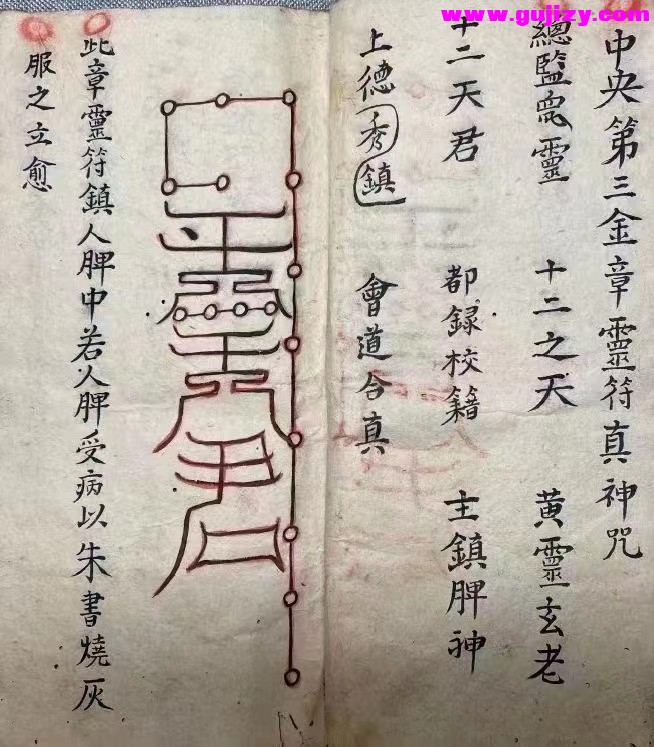 www.gujizy.com
中央第三金章靈符真神咒
總監眾靈 十二之天 黄靈玄老
十二天君 都録校籍 主鎮脾神
上德秀鎮 會道合真
此章靈符鎮人脾中若人脾受病以朱書燒灰
服之立愈